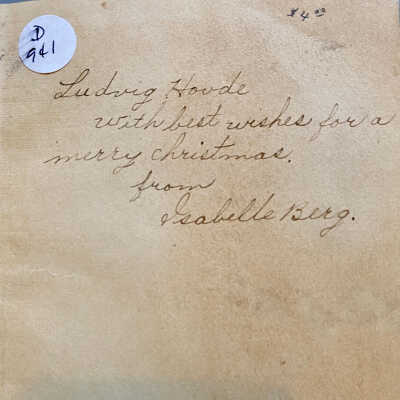 D
941
$4.00
Ludvig Hovde
with best wishes for a
merry Christmas.
from
Isabelle Berg.